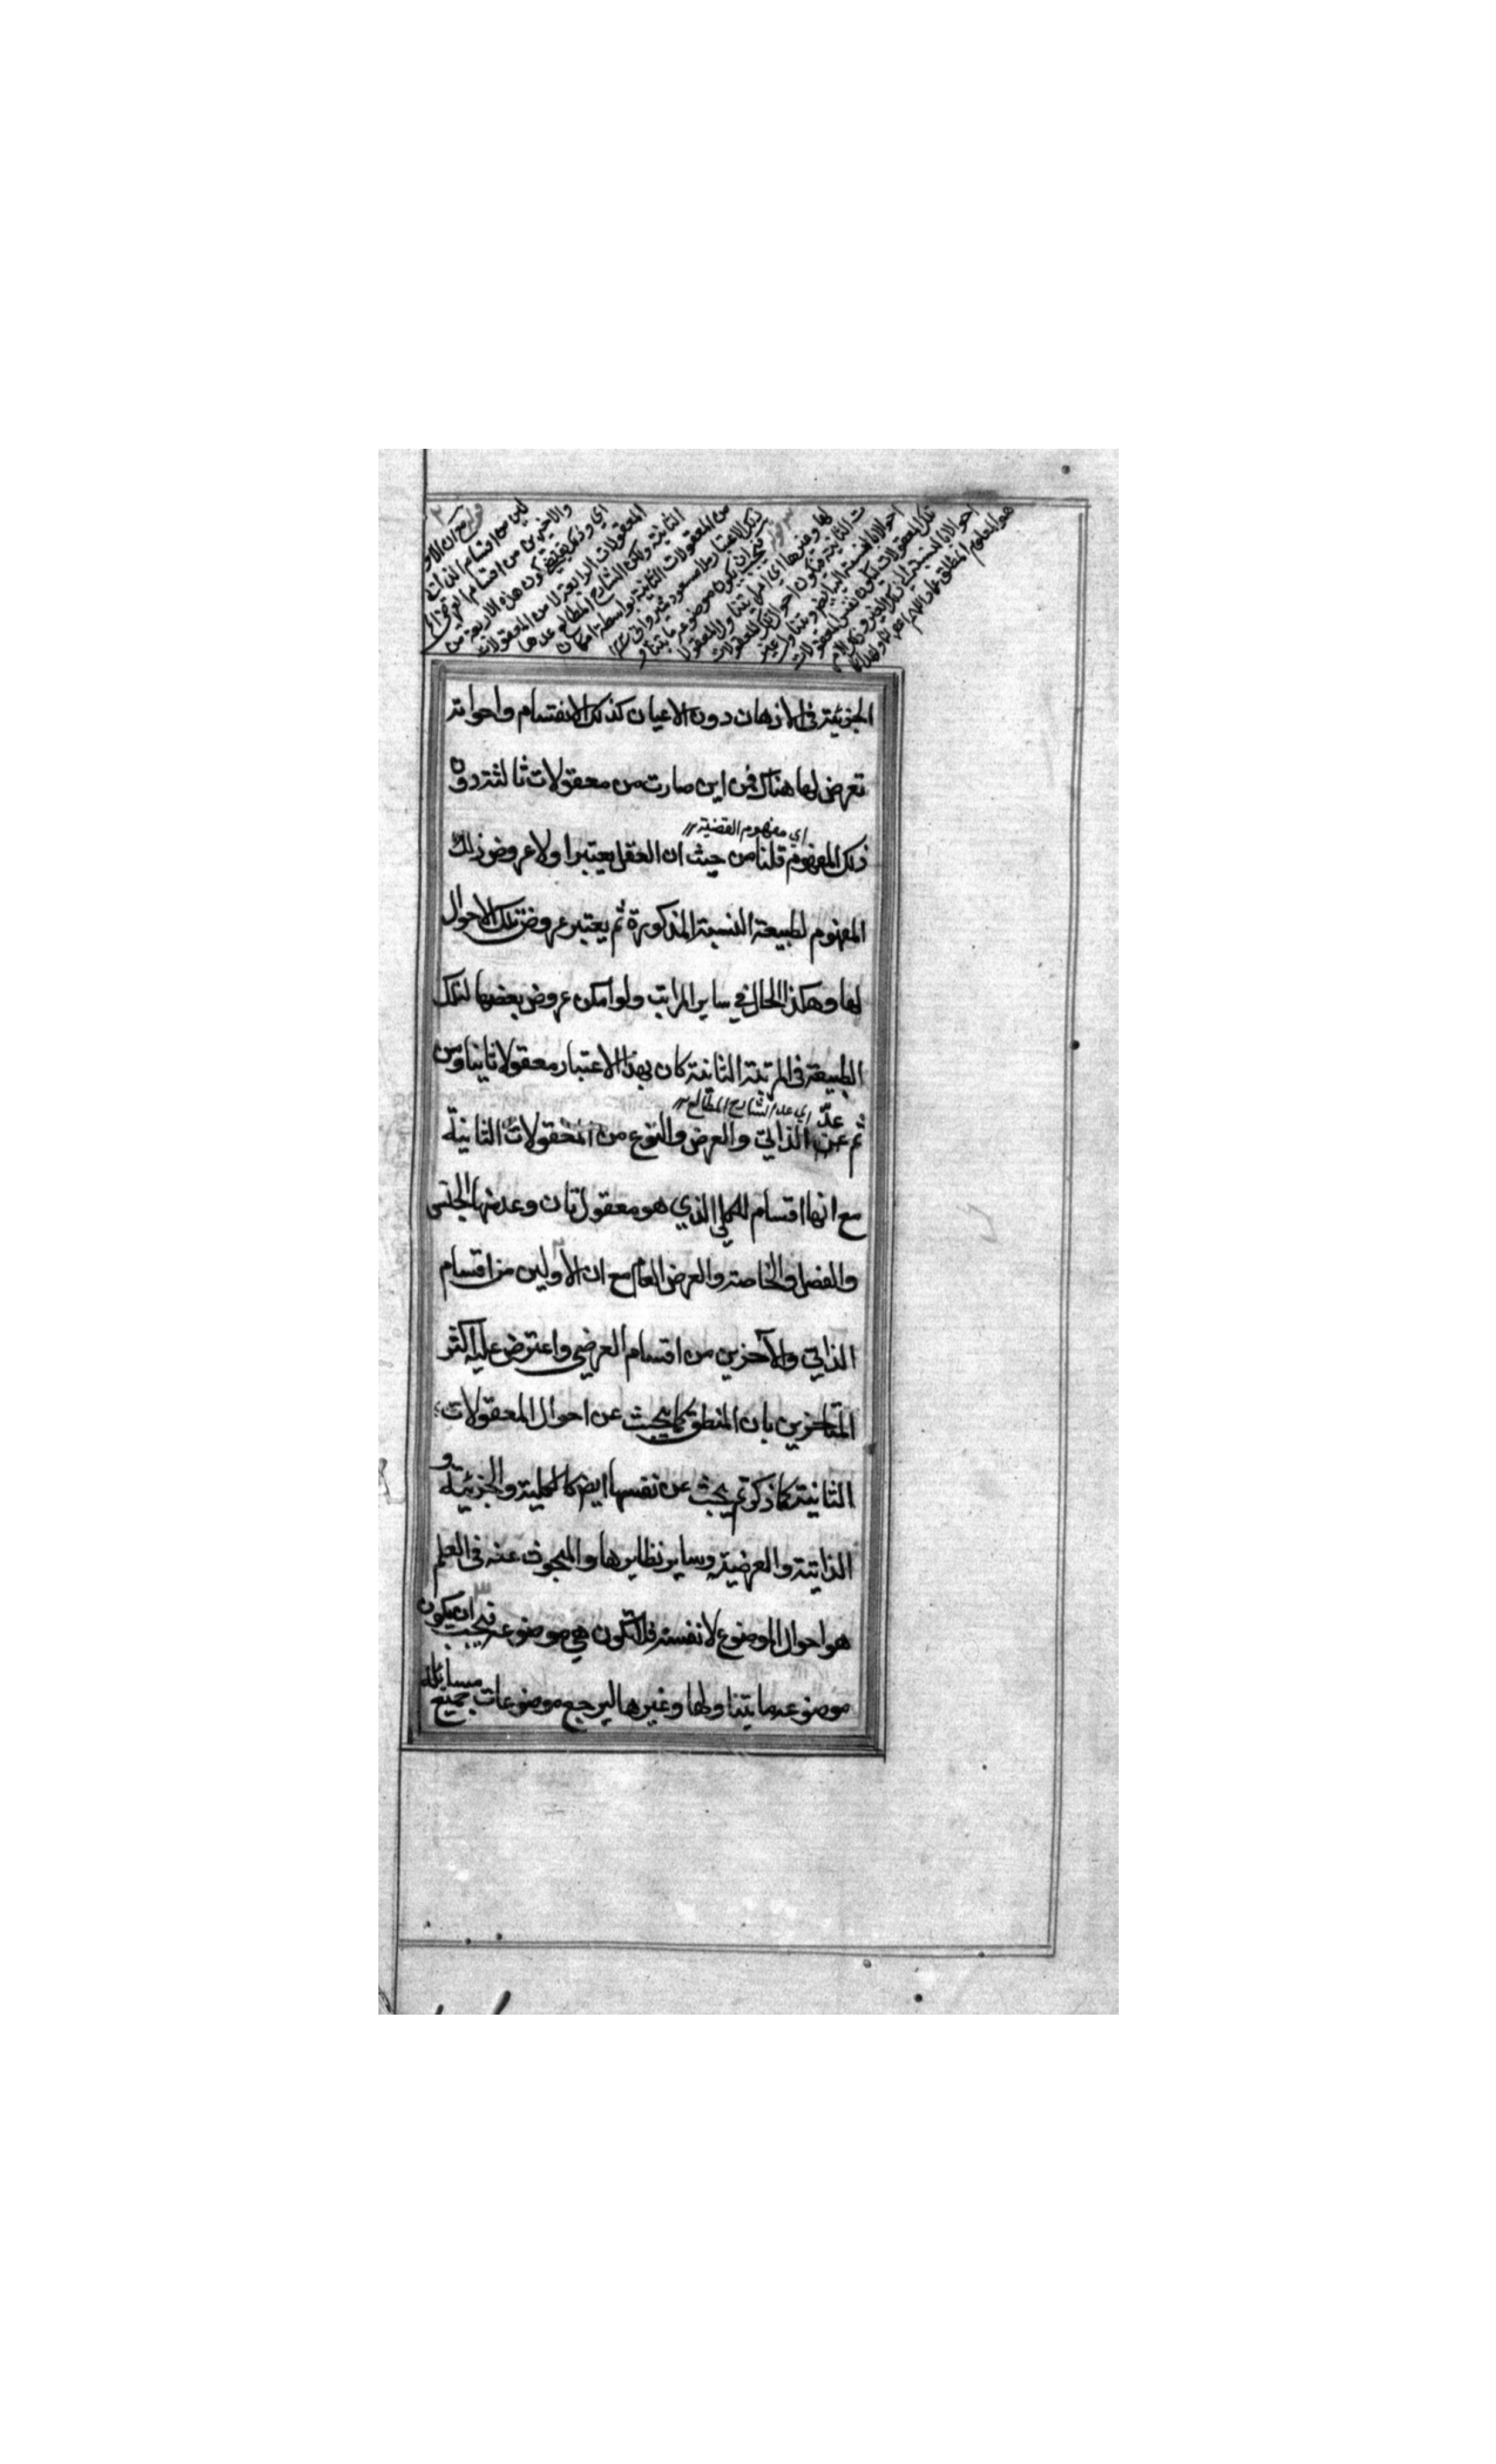 قوله مع ان الاو
لين من اقسام الذاتي
والاخيرين من اقسام العرضي
اي وذلك يقتضي كون هذه الاربعة من
المعقولات الرابعة لا من المعقولات
الثانية ولكن الشارح المطالع عدها
من المعقولات الثانية بواسطة امكان
ذلك الاعتبار
قوله فيجب ان يكون موضوعه ما يتناو
لها وغيرها اي امر يتناول المعقولا
ت الثانية فيكون احوال تلك المعقولات
تلك المعقولات
هو المعلوم
الجزئية في الاذهان دون الاعيان كذلك الانقسام واخواته
تعرض لها هناك فمن اين صارت من معقولات ثالثة دون
اي مفهوم القضية
ذلك المفهوم قلنا من حيث ان العقل يعتبر اولا عروض ذلك
المفهوم لطبيعة النسبة المذكورة ثم يعتبر عروض تلك الاحوال
لها وهكذا الحال في ساير المراتب ولو امكن عروض بعضها لتلك
الطبيعة في المرتبة الثانية كان بهذا الاعتبار معقولا ثانيا ومن
عدّ اي عد الشارح المطالع
ثم عن الذاتي والعرض والنوع من المعقولات الثانية
مع انها اقسام للكلي الذي هو معقول ثان وعد منها الجنس
والفصل والخاصة والعرض العام مع ان الاولين من اقسام
الذاتي والآخرين من اقسام العرضي واعترض عليه اكثر
المتاخرين بان المنطق كما يبحث عن احوال المعقولات
الثانية كما ذكرتم يبحث عن نفسها ايض كالكلية والجزئية و
الذاتية والعرضية وساير نظايرها والمبحوث عنه في العلم
هو احوال الموضوع لا نفسه فلا تكون هي موضوعه فيجب ان يكون
موضوعه ما يتناولها وغيرها ليرجع موضوعات جميع مسائله